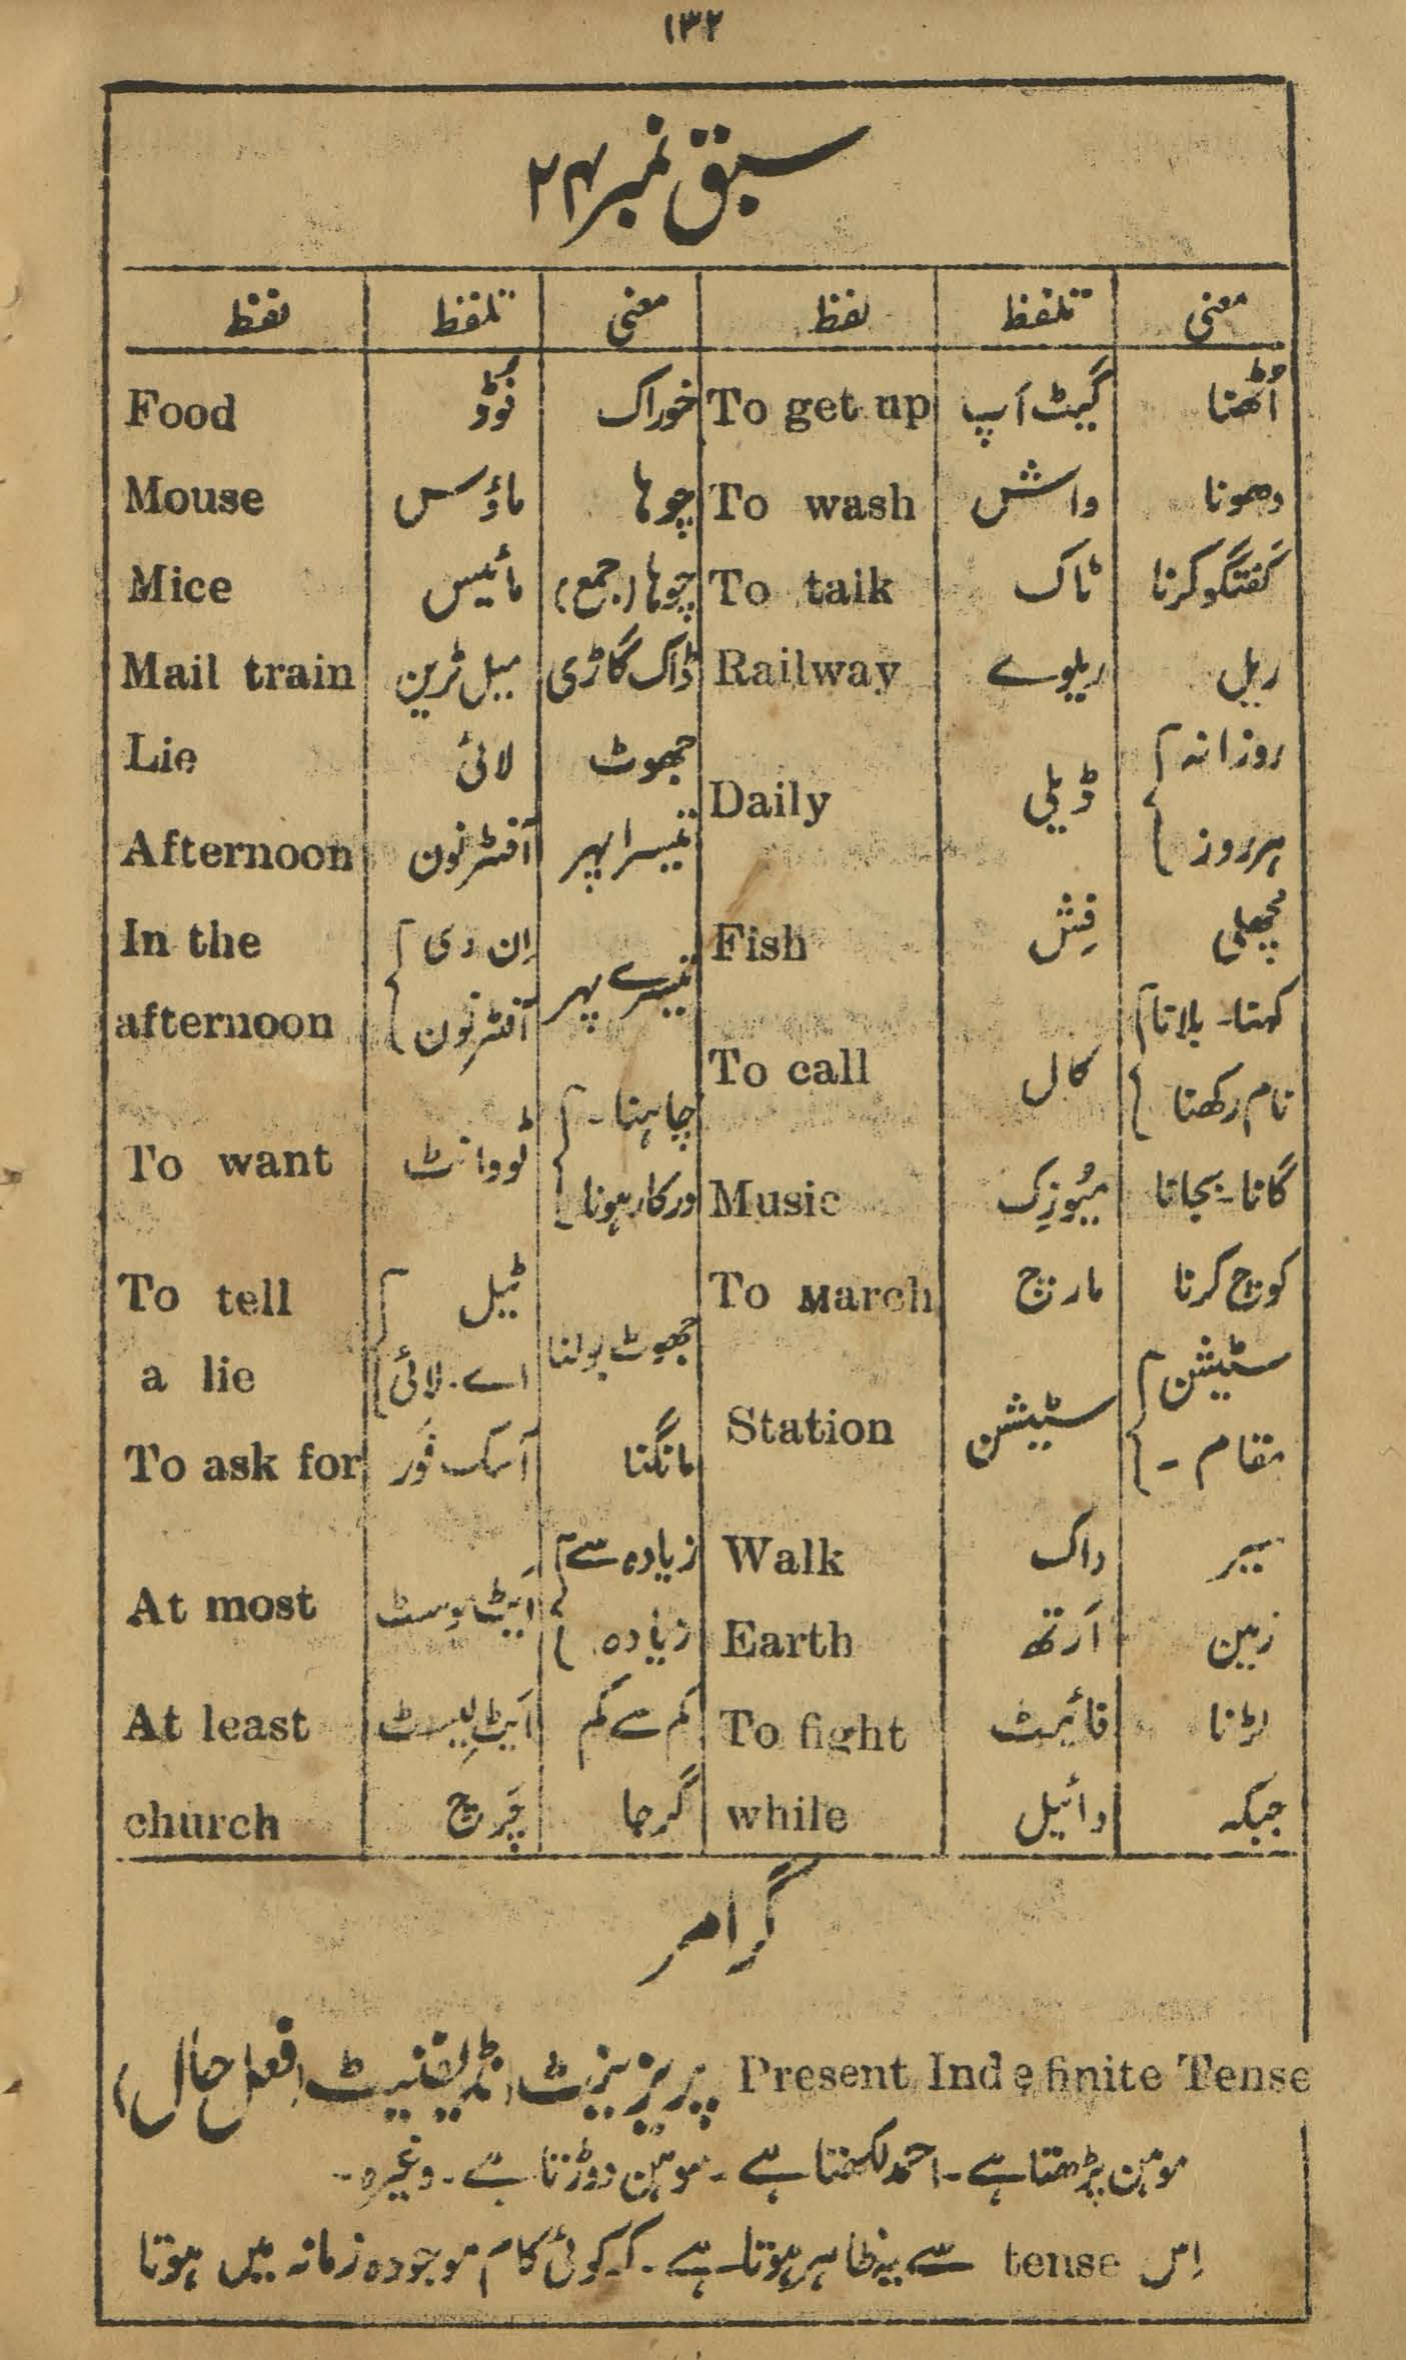 ۱۳۲
سبق نمبر ۲۴
لفظ تلفظ معنی لفظ تلفظ معنی
Food فُوڈ خوراک To get up گیٹ اَپ اُٹھنا
Mouse ماؤس چوہا To wash واش دھونا
Mice مائیس چوہا (جمع) To talk ٹاک گفتگو کرنا
Mail train میل ٹرین ڈاک گاڑی Railway ریلوے ریل
Lie لائی جھوٹ Daily ڈیلی روزانہ ہرروز
Afternoon آفٹرنون تیسرا پہر
In the afternoon اِن دی آفٹرنون تیسرے پہر Fish فِش مچھلی
To call کال کہنا۔ بلانا نام رکھنا
To want ٹووانٹ چاہنا۔ درکار ہونا Music میُوزِک گانا۔ بجانا
To tell a lie ٹیل اے۔ لائی جھوٹ بولنا To March مارچ کوچ کرنا
To ask for آسک فَور مانگنا Station سٹیشن سٹیشن مقام۔
At most اَیٹ موسٹ زیادہ سے زیادہ Walk واک سیر
Earth اَرتھ زمین
At least اَیٹ لِیسٹ کم سے کم To fight فائیٹ لڑنا
church چَرچ گرجا while وائیل جبکہ
گرامر
Present Indefinite Tense پریزینٹ انڈیفنیٹ (فعل حال)
موہن پڑھتا ہے۔ احمد لکھتا ہے۔ سوہن دوڑتا ہے۔ وغیرہ۔
اِس tense سے یہ ظاہر ہوتا ہے۔ کہ کوئی کام موجودہ زمانہ میں ہوتا